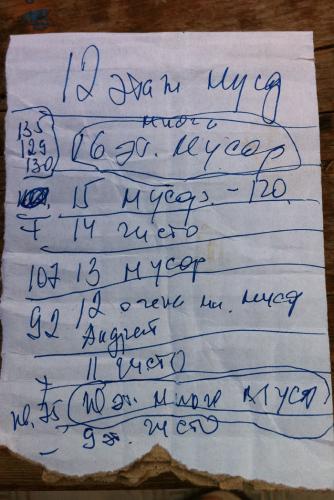 12 этаж мусор
135
129
130
много
16 эт. мусор
15 мусор. - 120.
7 14 чисто
107 13 мусор
92 12 очень мн. мусор
Андрей
11 чисто
кв. 75 10 эт. много мусор
9 эт. чисто